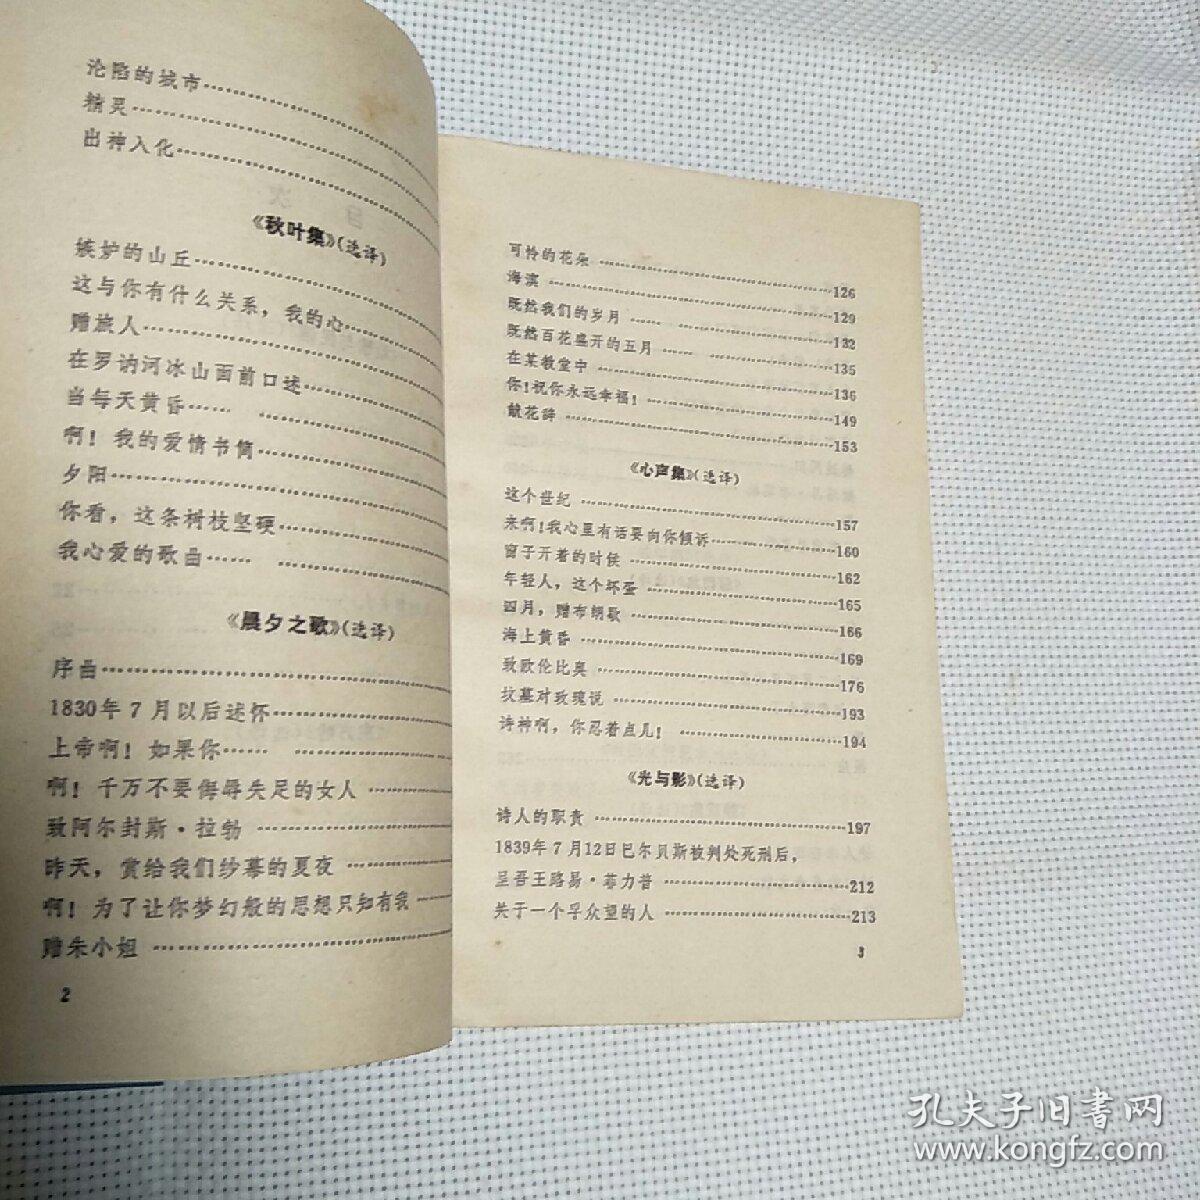 沦陷的城市
精灵
出神入化
《秋叶集》(选译)
嫉妒的山丘
这与你有什么关系，我的心
赠旅人
在罗讷河冰山面前口述
当每天黄昏
啊！我的爱情书简
夕阳
你看，这条树枝坚硬
我心爱的歌曲
《晨夕之歌》(选译)
序曲
1830年7月以后述怀
上帝啊！如果你
啊！千万不要侮辱失足的女人
致阿尔封斯·拉勃
昨天，赏给我们纱幕的夏夜
啊！为了让你梦幻般的思想只知有我
赠朱小姐
2
可怜的花朵 126
海滨 129
既然我们的岁月 132
既然百花盛开的五月 135
在某教堂中 136
你！祝你永远幸福！ 149
献花辞 153
《心声集》(选译)
这个世纪 157
来啊！我心里有话要向你倾诉 160
窗子开着的时候 162
年轻人，这个坏蛋 165
四月，赠布朗歇 166
海上黄昏 169
致欧伦比奥 176
坟墓对玫瑰说 193
诗神啊，你忍着点儿！ 194
《光与影》(选译)
诗人的职责 197
1839年7月12日巴尔贝斯被判处死刑后，
呈吾王路易·菲力普 212
关于一个孚众望的人 213
3
孔夫子旧书网
www.kongfz.com